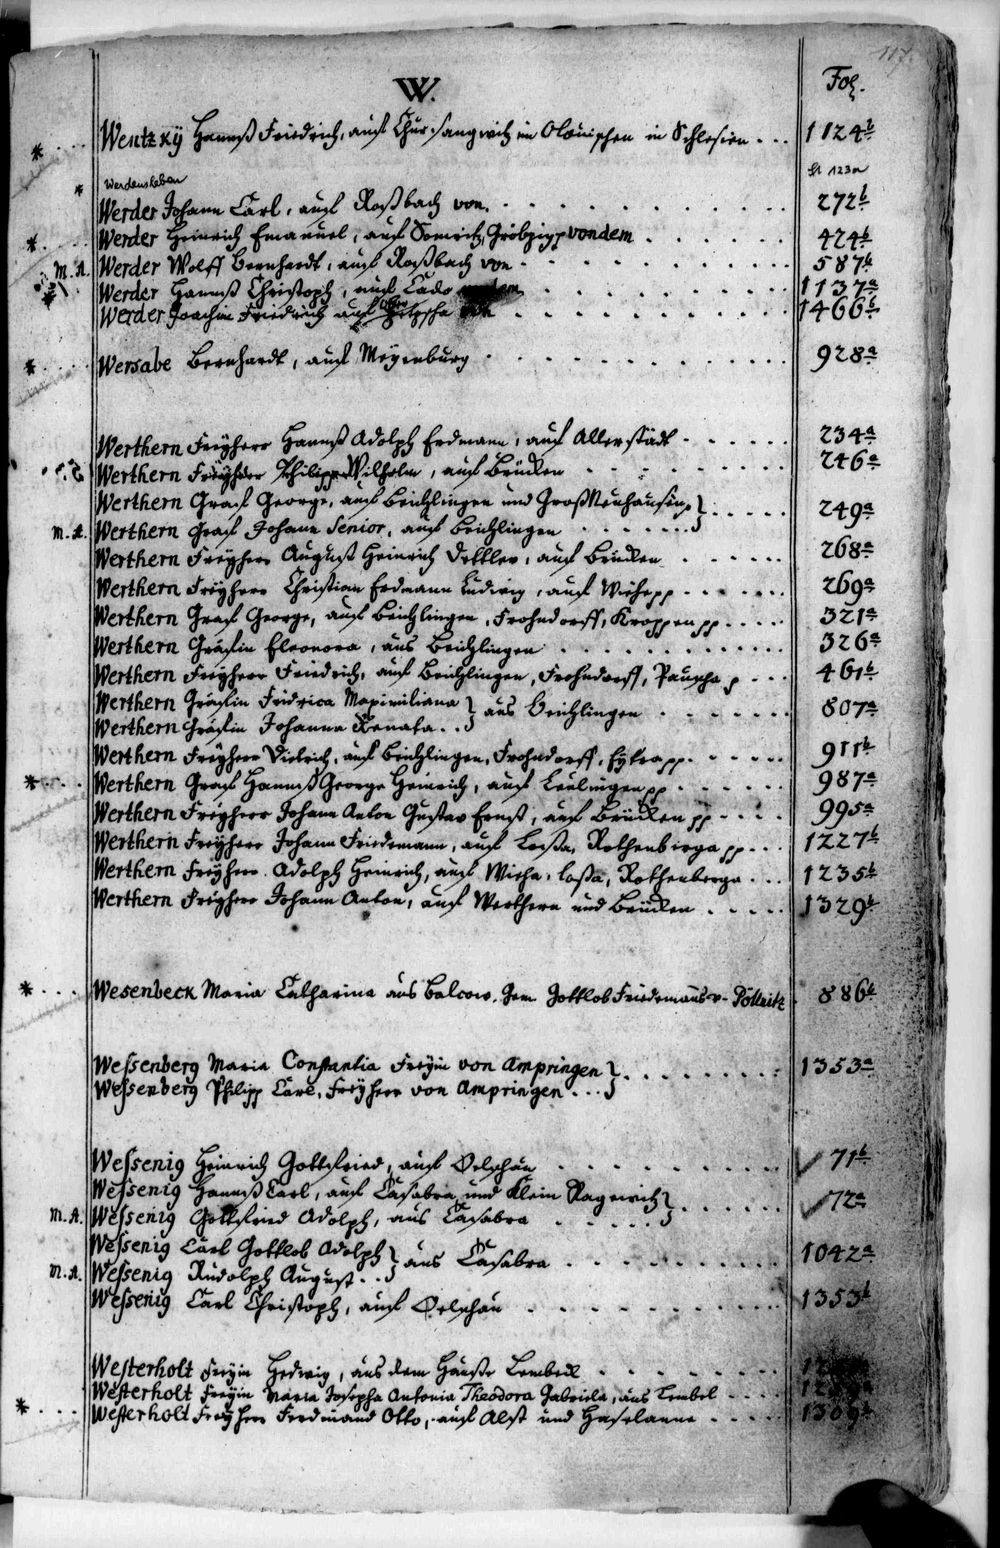 117.
W.
Fol.
* Wentzky Hannß Friedrich, auf Chursangwitz im Olauischen in Schlesien ... 1124b
fol 123a
Werdensleben
* Werder Johann Carl, auf Roßbach von. 272b
* Werder Heinrich Emanuel, auf Gröbzig pp von dem 424b
M.A. Werder Wolff Bernhardt, auf Roßbach von 587b
* Werder Hannß Christoph, auf 1137a
Werder Joachim Friedrich auf 1466b
* Wersabe Bernhardt, auf Meyenburg 928a
Werthern Freyherr Hannß Adolph Erdmann, auf Allerstädt 234a
Werthern Freyherr Philipp Wilhelm, auf Brücken 246a
Werthern Graf George, auf Beichlingen und Groß Neuhausen } 249a
M.A. Werthern Graf Johann Senior, auf Beichlingen
Werthern Freyherr August Heinrich Dettlev, auf Brücken 268a
Werthern Freyherr Christian Erdmann Ludwig, auf Wiehe pp 269a
Werthern Graf George, auf Beichlingen, Frohndorff, Kroppen pp 321a
Werthern Gräfin Eleonora, aus Beichlingen 326a
Werthern Freyherr Friedrich, auf Beichlingen, Frohndorff, p 461b
Werthern Gräfin Fridrica Maximiliana } aus Beichlingen 807a
Werthern Gräfin Johanna Renata..
Werthern Freyherr Dietrich, auf Beichlingen, Frohndorff, Eytra pp. 911b
* Werthern Graf Hannß George Heinrich, auf pp 987a
Werthern Freyherr Johann Anton Gustav Ernst, auf Brücken pp 995a
Werthern Freyherr Johann Friedemann, auf Loßa, Rothenberga pp... 1227b
Werthern Freyherr Adolph Heinrich, auf Wiehe, Loßa, Rothenberga ... 1235b
Werthern Freyherr Johann Anton, auf Werthern und Brücken 1329b
* Wesenbeck Maria Catharina aus Balcow. Gem Gottlob Friedemanns v. Pöllnitz 886b
Wessenberg Maria Constantia Freyin von Ampringen } 1353a
Wessenberg Philipp Carl, Freyherr von Ampringen ...
Wessenig Heinrich Gottfried, auf Oelschau 71b
Wessenig Hannß Carl, auf Casabra und Klein Ragewitz } 72a
M.A. Wessenig Gottfried Adolph, aus Casabra
Wessenig Carl Gottlob Adolph } aus Casabra 1042a
M.A. Wessenig Rudolph August ..
Wessenig Carl Christoph, auf Oelschau 1353b
Westerholt Freyin Hedwig, aus dem Hauße Lembeck
Westerholt Freyin Maria Josepha Antonia Theodora Gabriela, aus Lembek
* Westerholt Freyherr Ferdinand Otto, auf Alst und Haselanne 1309b